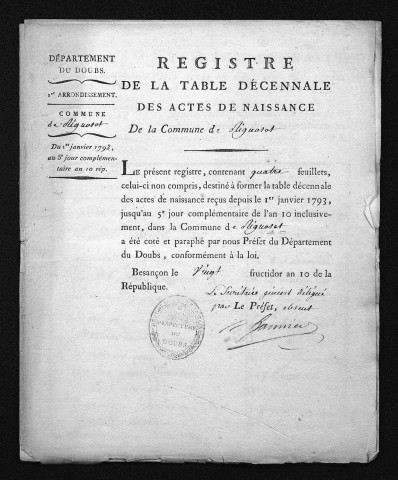 DÉPARTEMENT
DU DOUBS.
1er ARRONDISSEMENT.
COMMUNE
de Rignosot
Du 1er janvier 1793,
au 5e jour complémen-
taire an 10 rép.
REGISTRE
DE LA TABLE DÉCENNALE
DES ACTES DE NAISSANCE
De la Commune de Rignosot
LE présent registre, contenant quatre feuillets,
celui-ci non compris, destiné à former la table décennale
des actes de naissance reçus depuis le 1er janvier 1793,
jusqu'au 5e jour complémentaire de l'an 10 inclusive-
ment, dans la Commune de Rignosot
a été coté et paraphé par nous Préfet du Département
du Doubs, conformément à la loi.
Besançon le Vingt fructidor an 10 de la
République.
Le Secrétaire général délégué
par Le Préfet, absent
PRÉFECTURE
DU
DOUBS